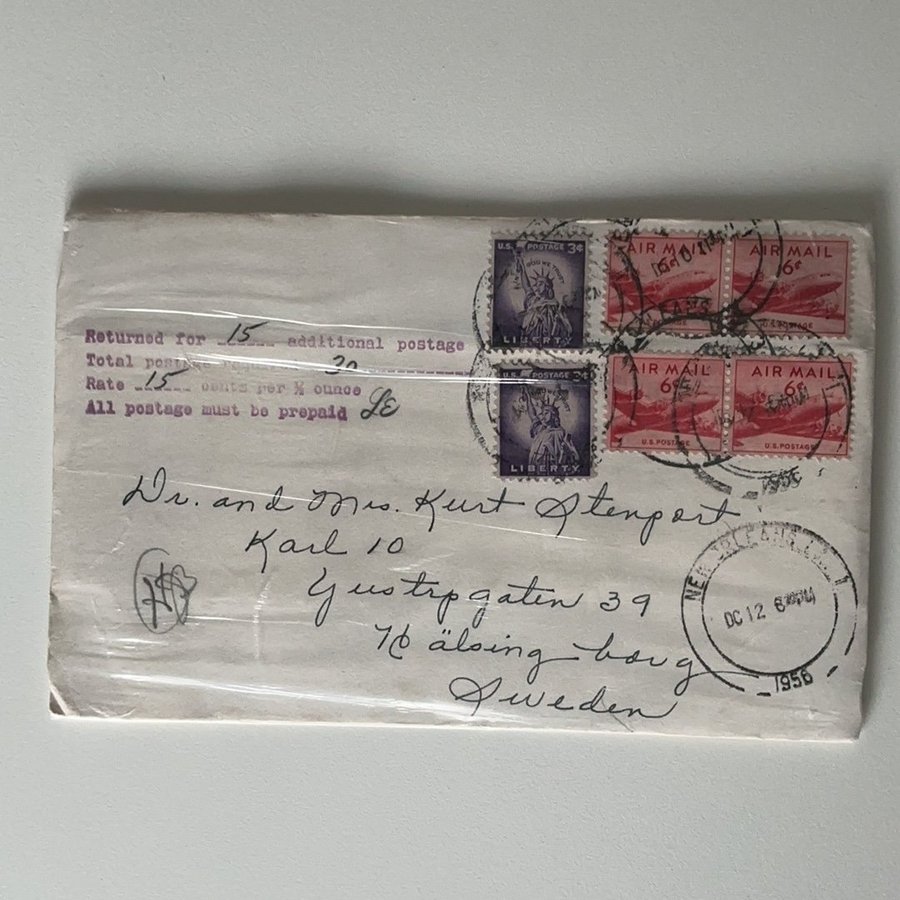 U.S. POSTAGE 3¢
IN GOD WE TRUST
LIBERTY
AIR MAIL
6¢
U.S. POSTAGE
AIR MAIL
6¢
U.S. POSTAGE
U.S. POSTAGE 3¢
LIBERTY
AIR MAIL
6¢
U.S. POSTAGE
AIR MAIL
6¢
U.S. POSTAGE
1956
Returned for 15 additional postage
Total postage 30
Rate 15 cents per ½ ounce
All postage must be prepaid
Dr. and Mrs. Kurt Stenport
Karl 10
Yustrpgaten 39
Hälsingborg
Sweden
NEW ORLEANS, LA. 1
DC 12 6 PM
1956